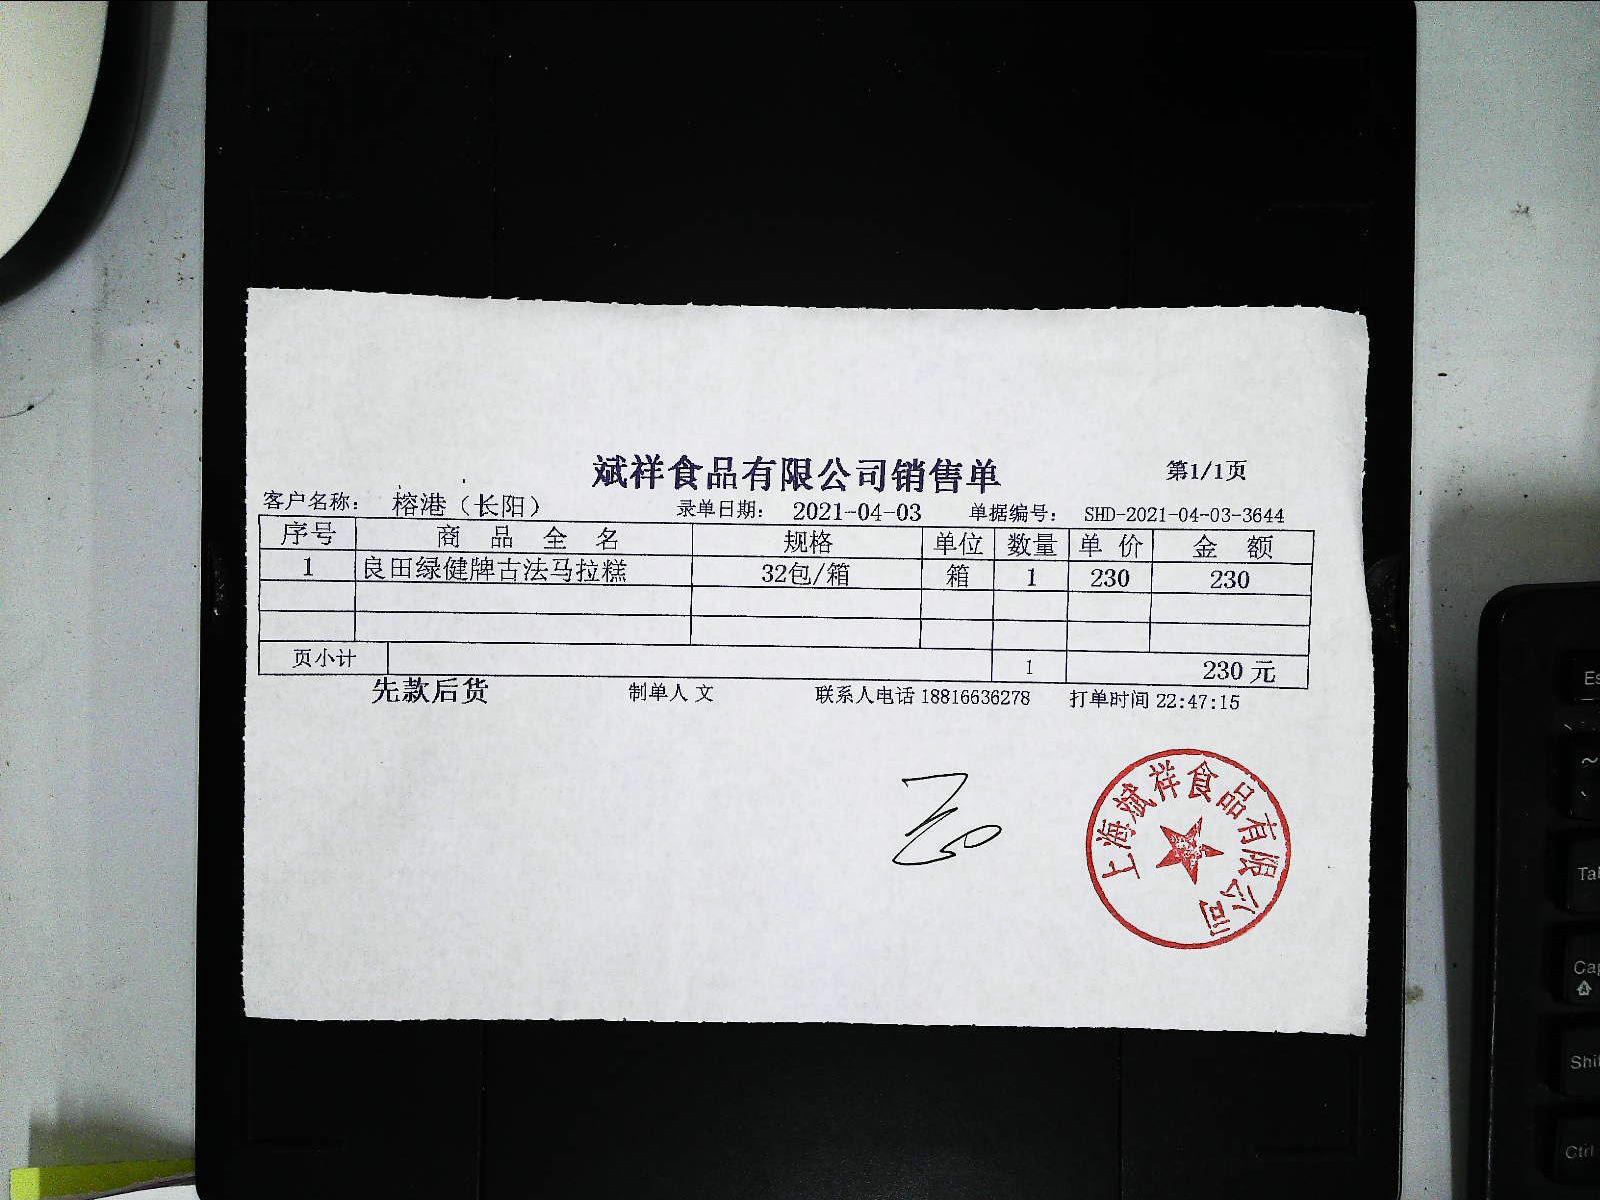 斌祥食品有限公司销售单
第1/1页
客户名称： 榕港（长阳） 录单日期： 2021-04-03 单据编号： SHD-2021-04-03-3644
序号 商 品 全 名 规格 单位 数量 单 价 金 额
1 良田绿健牌古法马拉糕 32包/箱 箱 1 230 230
页小计 1 230 元
先款后货 制单人 文 联系人电话 18816636278 打单时间 22:47:15
上海斌祥食品有限公司
~
Shi
Ctrl